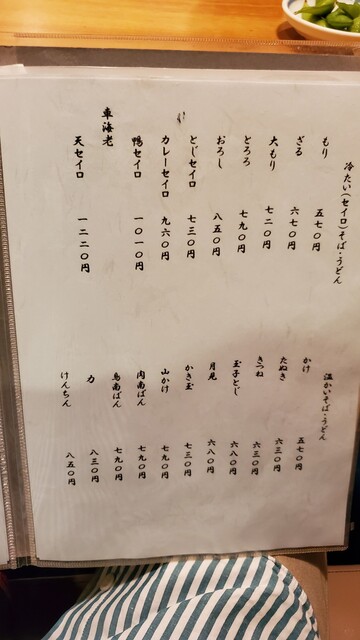 冷たい(セイロ)そば・うどん
もり 五七〇円
ざる 六七〇円
大もり 七二〇円
とろろ 七九〇円
おろし 八五〇円
とじセイロ 七三〇円
カレーセイロ 九六〇円
鴨セイロ 一〇一〇円
車海老
天セイロ 一二二〇円
温かいそば・うどん
かけ 五七〇円
たぬき 六三〇円
きつね 六三〇円
玉子とじ 六八〇円
月見 六八〇円
かき玉 七三〇円
山かけ 七九〇円
肉南ばん 七九〇円
鳥南ばん 七九〇円
力 八三〇円
けんちん 八五〇円